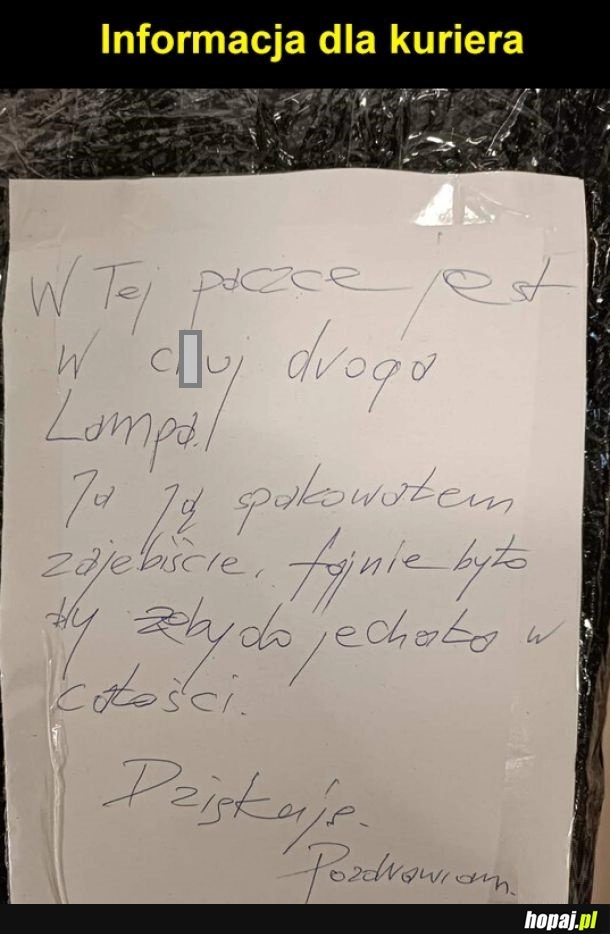 Informacja dla kuriera
W Tej paczce jest
w c uj droga
Lampa!
Ja ją spakowałem
zajebiście, fajnie było
by żeby dojechała w
całości.
Dziękuję.
Pozdrawiam.
hopaj.pl